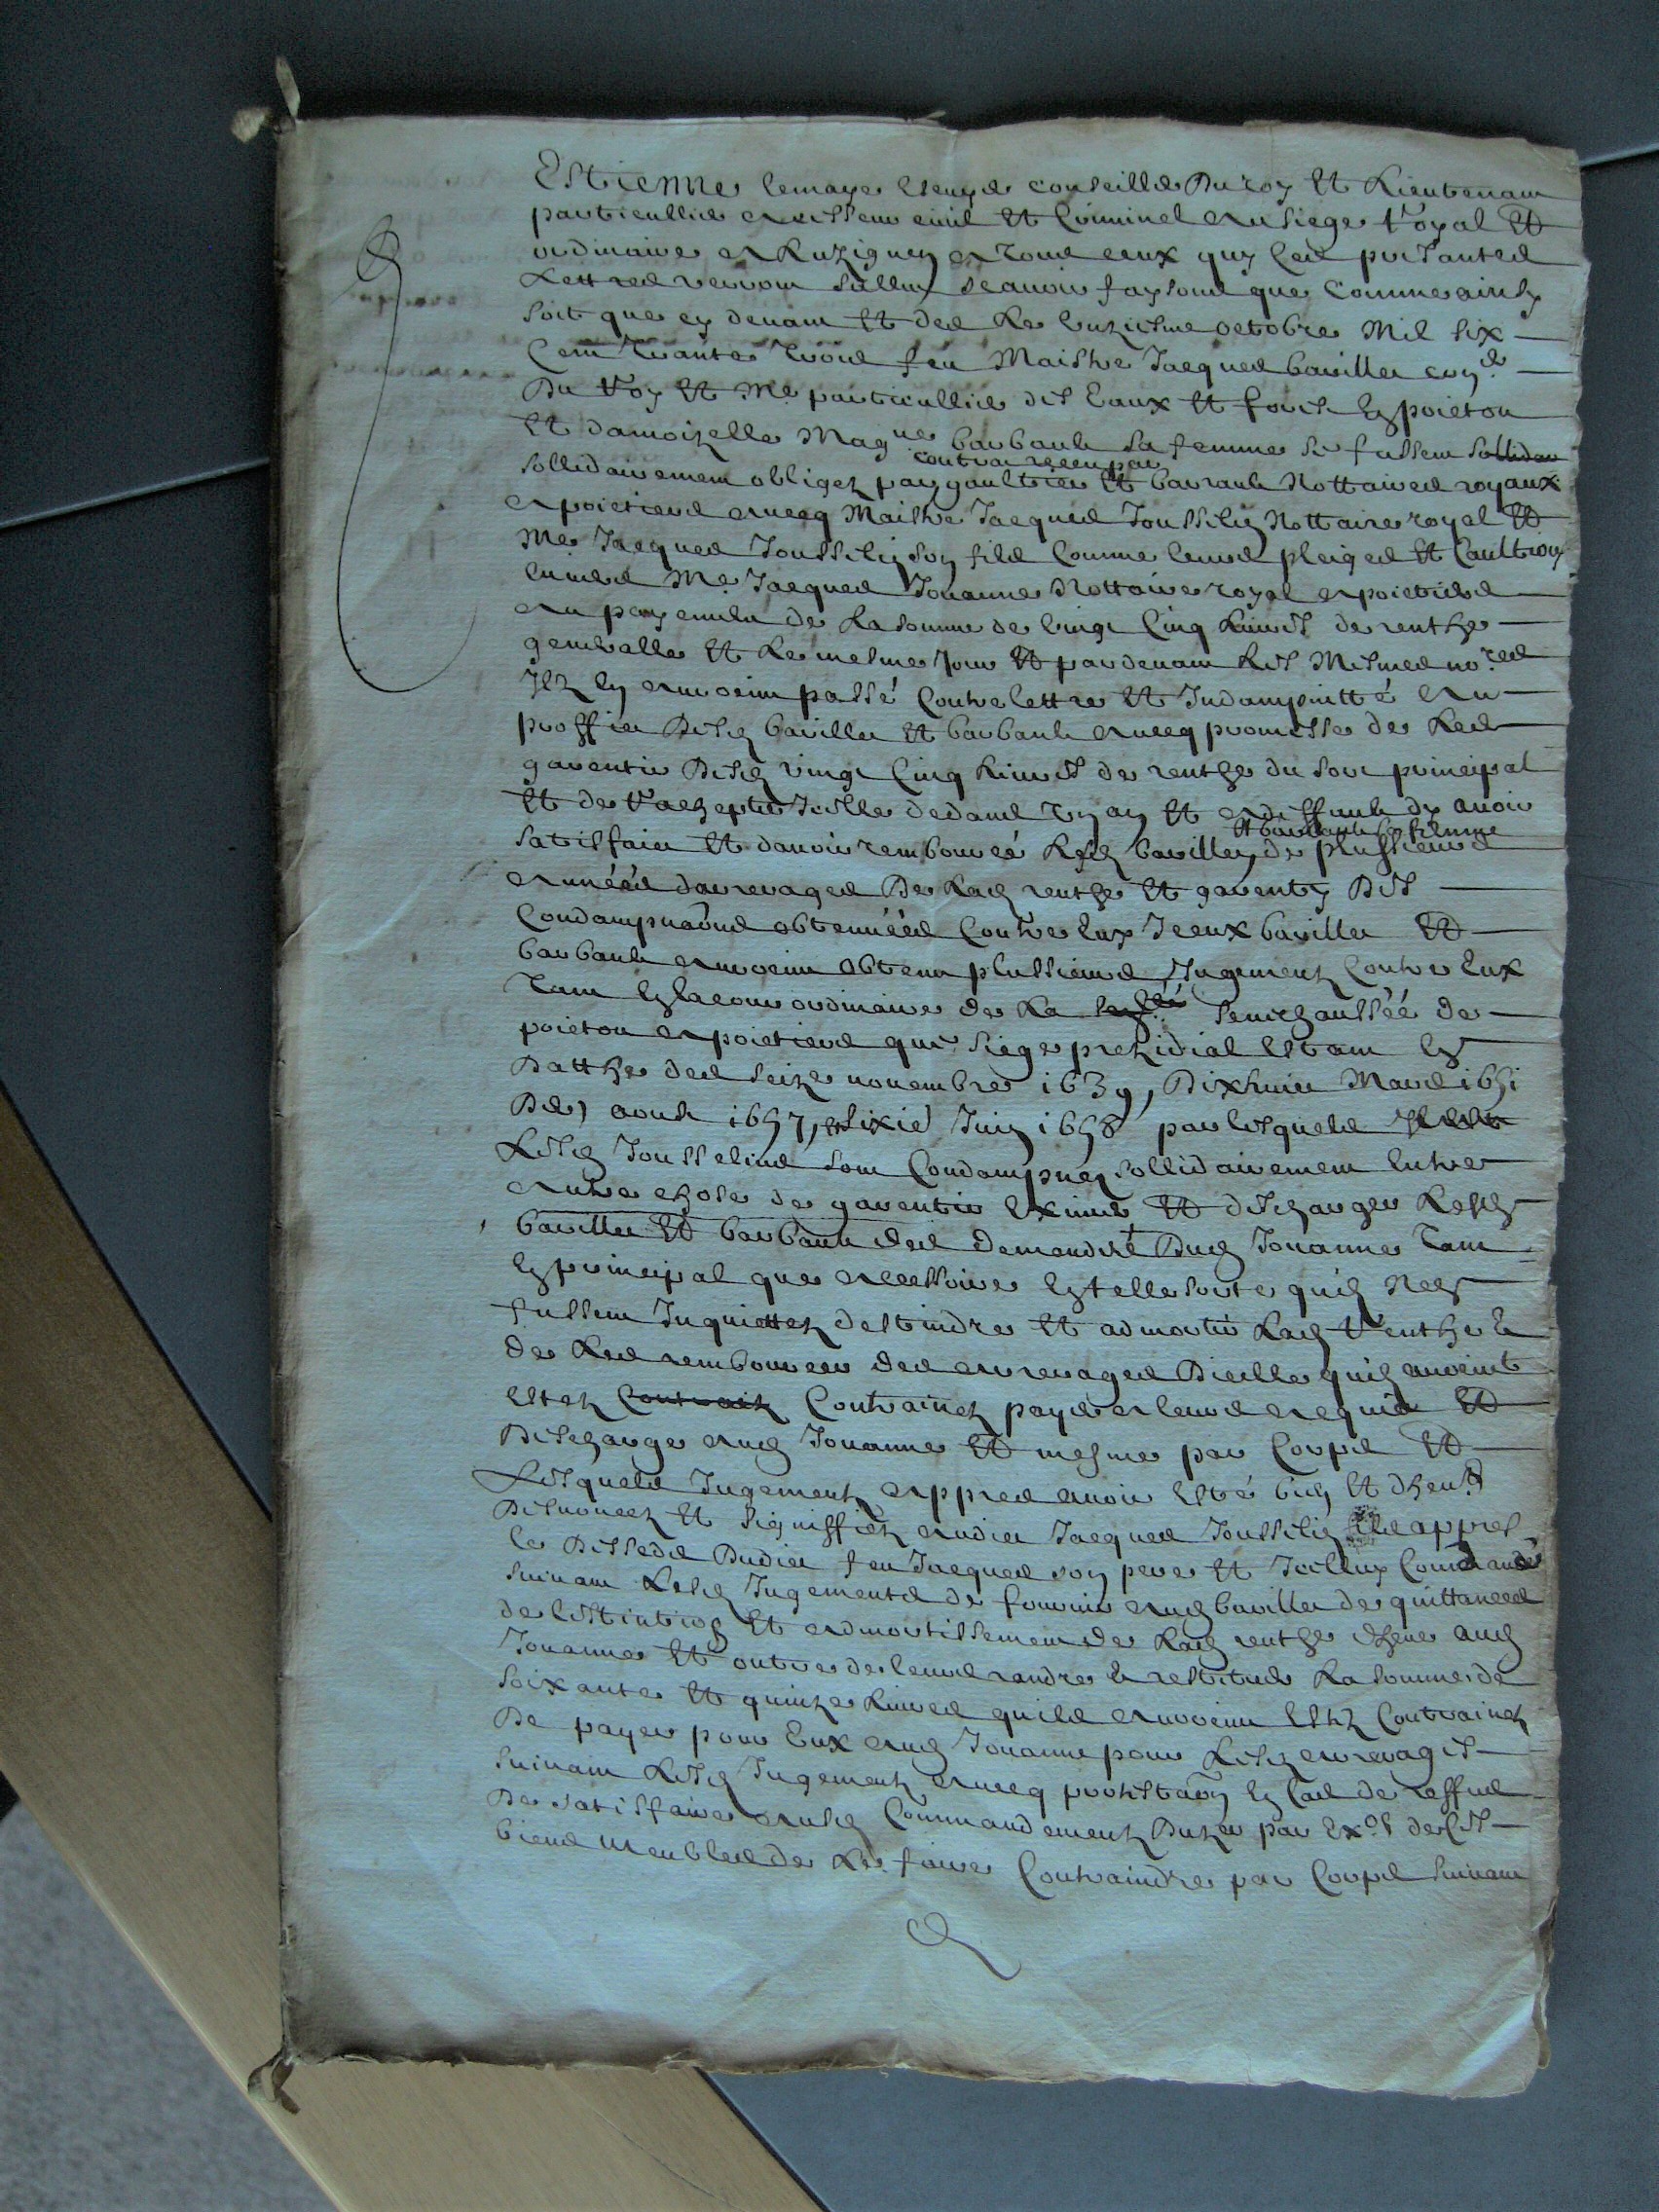 Estienne lemaye escuyer conseiller du roy et Lieutenam
particullier assesseur civil et Criminel au siege Royal et
ordinaire a Luzignen a tous ceux quy ces presantes
Lettres verrom sallux scavoir faysons que Comme ainsy
soit que cy devam et des Le unziesme octobre Mil six
Cent trante trois feu Maistre Jacques baviller coner
Du Roy et Me particullier des Eaux et forest En poictou
et damoizelle Magne barbault sa femme se fussent sollidair
contrat receu par
sollidairement obligez par gaultier et barrault Nottaires royaux
a poictiers avecq Maistre Jacques Jousselin Nottaire royal et
Me Jacques Jousselin son fils Comme leurs pleiges et Caultion
envers Me Jacques Jouanne Nottaire royal a poictiers
au payement de La somme de vingt Cinq Livres de renthe
generalle et Le mesme Jour et pardevam Les Mesmes nores
Ilz en auroient passé Contrelettre et Indampnitté au
proffict desd baviller et barbault avecq promesse de Les
garentir desd vingt Cinq Livres de renthe du sort principal
et de Rachepter Icelle dedans un an et a deffault dy avoir
et barbault sa femme
satisfaict et davoir rembourcé Lesd baviller de plussieurs
années darrerages de Lad renthe et garenty des
Condampnaons obtennéés Contre Eux Iceux baviller et
barbault auroient obtenu plussieurs Jugementz Contre Eux
Tant En la cour ordinaire de La senechaussée de
poictou a poictiers que siege prezidial Estant En
datthe des seize novembre 1639, Dixhuict Mars 1651
aoust 1657, et sixie Juin 1658 par lesquels
Lesd Jousselins sont Condampnez sollidairement Entre
autre chose de garentir Eximer et descharger Lesd
baviller et barbault des demandes dud Jouanne Tant
En principal que accessoire En telle sorte quilz Nen
fussent Inquiettez desteindre et admortir Lad Renthe &
de Les rembourcer des arrerages dicelle quilz avoient
Estez Contraintz Contrainctz payer a leurs acquict et
descharge aud Jouanne et mesme par Corps et
Lesquels Jugementz appres avoir Esté bien et dheuemt
desnoncez et signiffiez audict Jacques Jousselin appres
le desseds dudict feu Jacques son pere et Icelluy Commandé
suivant Lesd Jugements de fournir aud baviller de quittances
de lestintion et admortissement de Lad renthe dheue aud
Jouanne et outre de leurs randre & restituer La somme de
soixante et quinze Livres quils auroient Estez Contrainctz
De payer pour Eux aud Jouanne pour Lesd arrerages
suivant Lesd Jugementz avecq protestaon En Cas de reffus
De satisfaire ausd Commandementz par Exon de ses
biens Meubles de Le faire Contraindre par Corps suivant